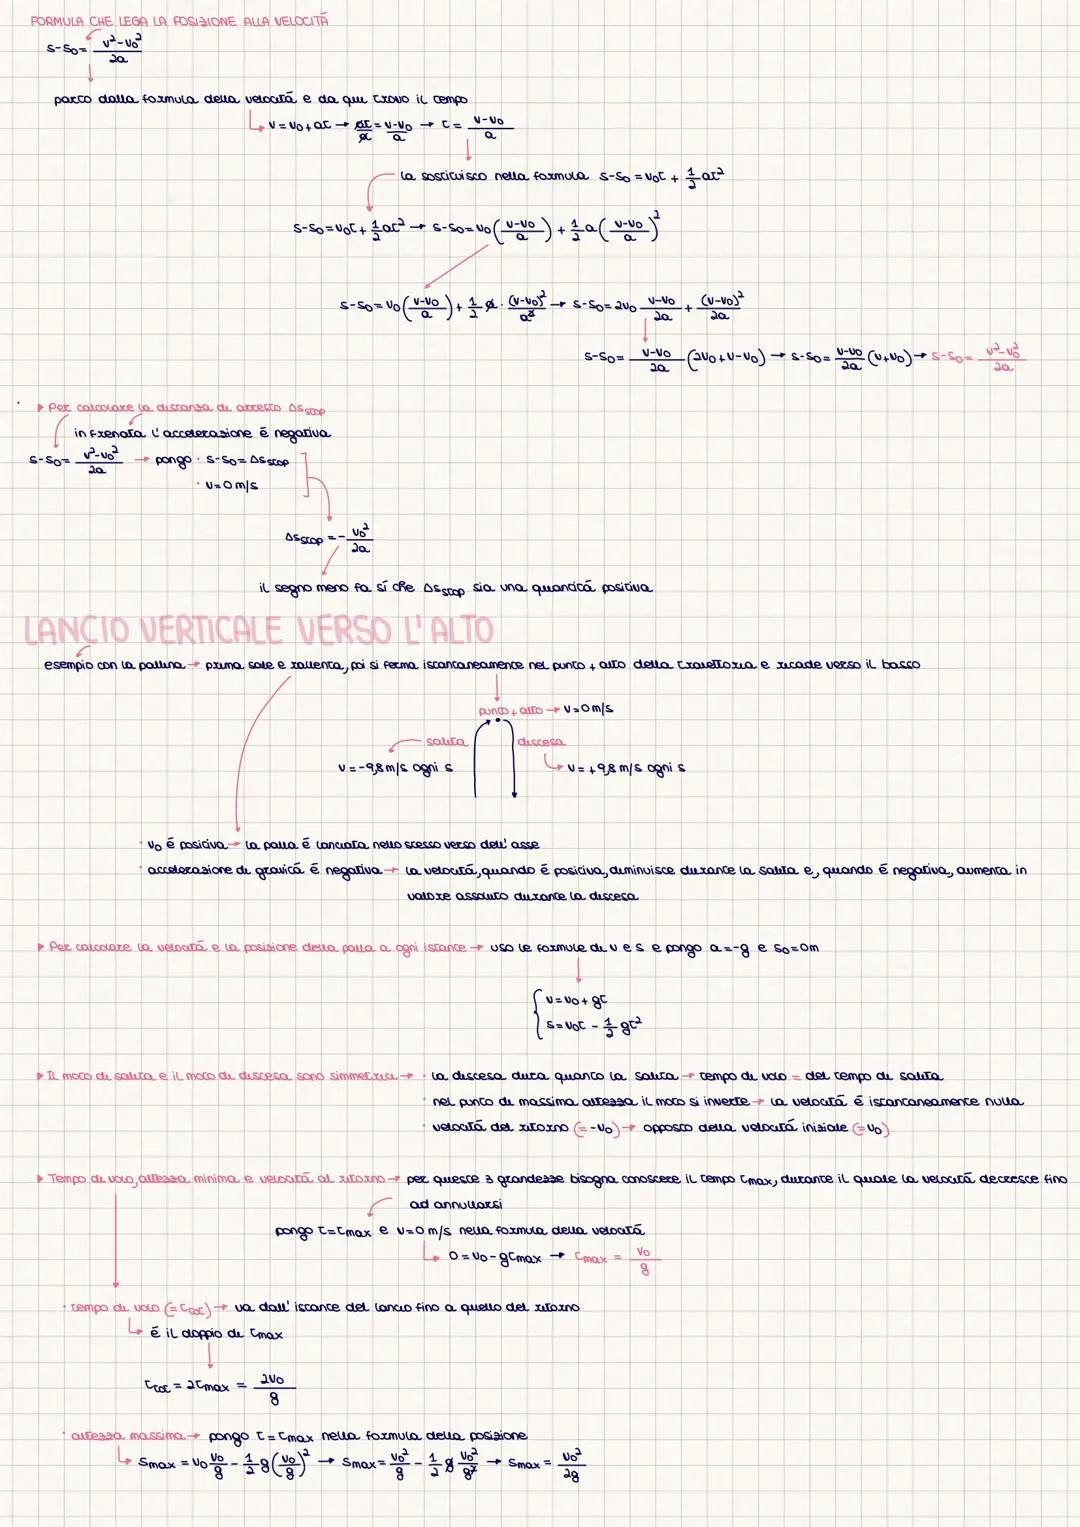 FORMULA CHE LEGA LA POSIZIONE ALLA VELOCITÀ
s-s₀ = (v²-v₀²)/2a
parto dalla formula della velocità e da qui trovo il tempo
v = v₀ + at → at/a = (v-v₀)/a → t = (v-v₀)/a
la sostituisco nella formula s-s₀ = v₀t + 1/2 at²
s-s₀ = v₀t + 1/2 at² → s-s₀ = v₀((v-v₀)/a) + 1/2 a((v-v₀)/a)²
s-s₀ = v₀((v-v₀)/a) + 1/2 a · (v-v₀)²/a² → s-s₀ = 2v₀ (v-v₀)/2a + (v-v₀)²/2a
s-s₀ = (v-v₀)/2a (2v₀+v-v₀) → s-s₀ = (v-v₀)/2a (v+v₀) → s-s₀ = (v²-v₀²)/2a
▸ Per calcolare la distanza di arresto Δs stop
in frenata l'accelerazione è negativa
s-s₀ = (v²-v₀²)/2a → pongo · s-s₀ = Δs stop
· v = 0 m/s
Δs stop = - v₀²/2a
il segno meno fa sì che Δs stop sia una quantità positiva
LANCIO VERTICALE VERSO L'ALTO
esempio con la pallina → prima sale e rallenta, poi si ferma istantaneamente nel punto + alto della traiettoria e ricade verso il basso
punto + alto → v = 0 m/s
salita discesa
v = -9,8 m/s ogni s v = +9,8 m/s ogni s
· v₀ è positiva → la palla è lanciata nello stesso verso dell'asse
· accelerazione di gravità è negativa → la velocità, quando è positiva, diminuisce durante la salita e, quando è negativa, aumenta in
valore assoluto durante la discesa
▸ Per calcolare la velocità e la posizione della palla a ogni istante → uso le formule di v e s e pongo a = -g e s₀ = 0m
{ v = v₀ + gt
s = v₀t - 1/2 gt²
▸ Il moto di salita e il moto di discesa sono simmetrici → · la discesa dura quanto la salita → tempo di volo = del tempo di salita
· nel punto di massima altezza il moto si inverte → la velocità è istantaneamente nulla
· velocità del ritorno (= -v₀) → opposto della velocità iniziale (= v₀)
▸ Tempo di volo, altezza minima e velocità al ritorno → per queste 3 grandezze bisogna conoscere il tempo tmax, durante il quale la velocità decresce fino
ad annullarsi
pongo t = tmax e v = 0 m/s nella formula della velocità
0 = v₀ - gtmax → tmax = v₀/g
· tempo di volo (= ttot) → va dall'istante del lancio fino a quello del ritorno
è il doppio di tmax
ttot = 2tmax = 2v₀/g
· altezza massima → pongo t = tmax nella formula della posizione
smax = v₀ v₀/g - 1/2 g(v₀/g)² → smax = v₀²/g - 1/2 g v₀²/g² → smax = v₀²/2g